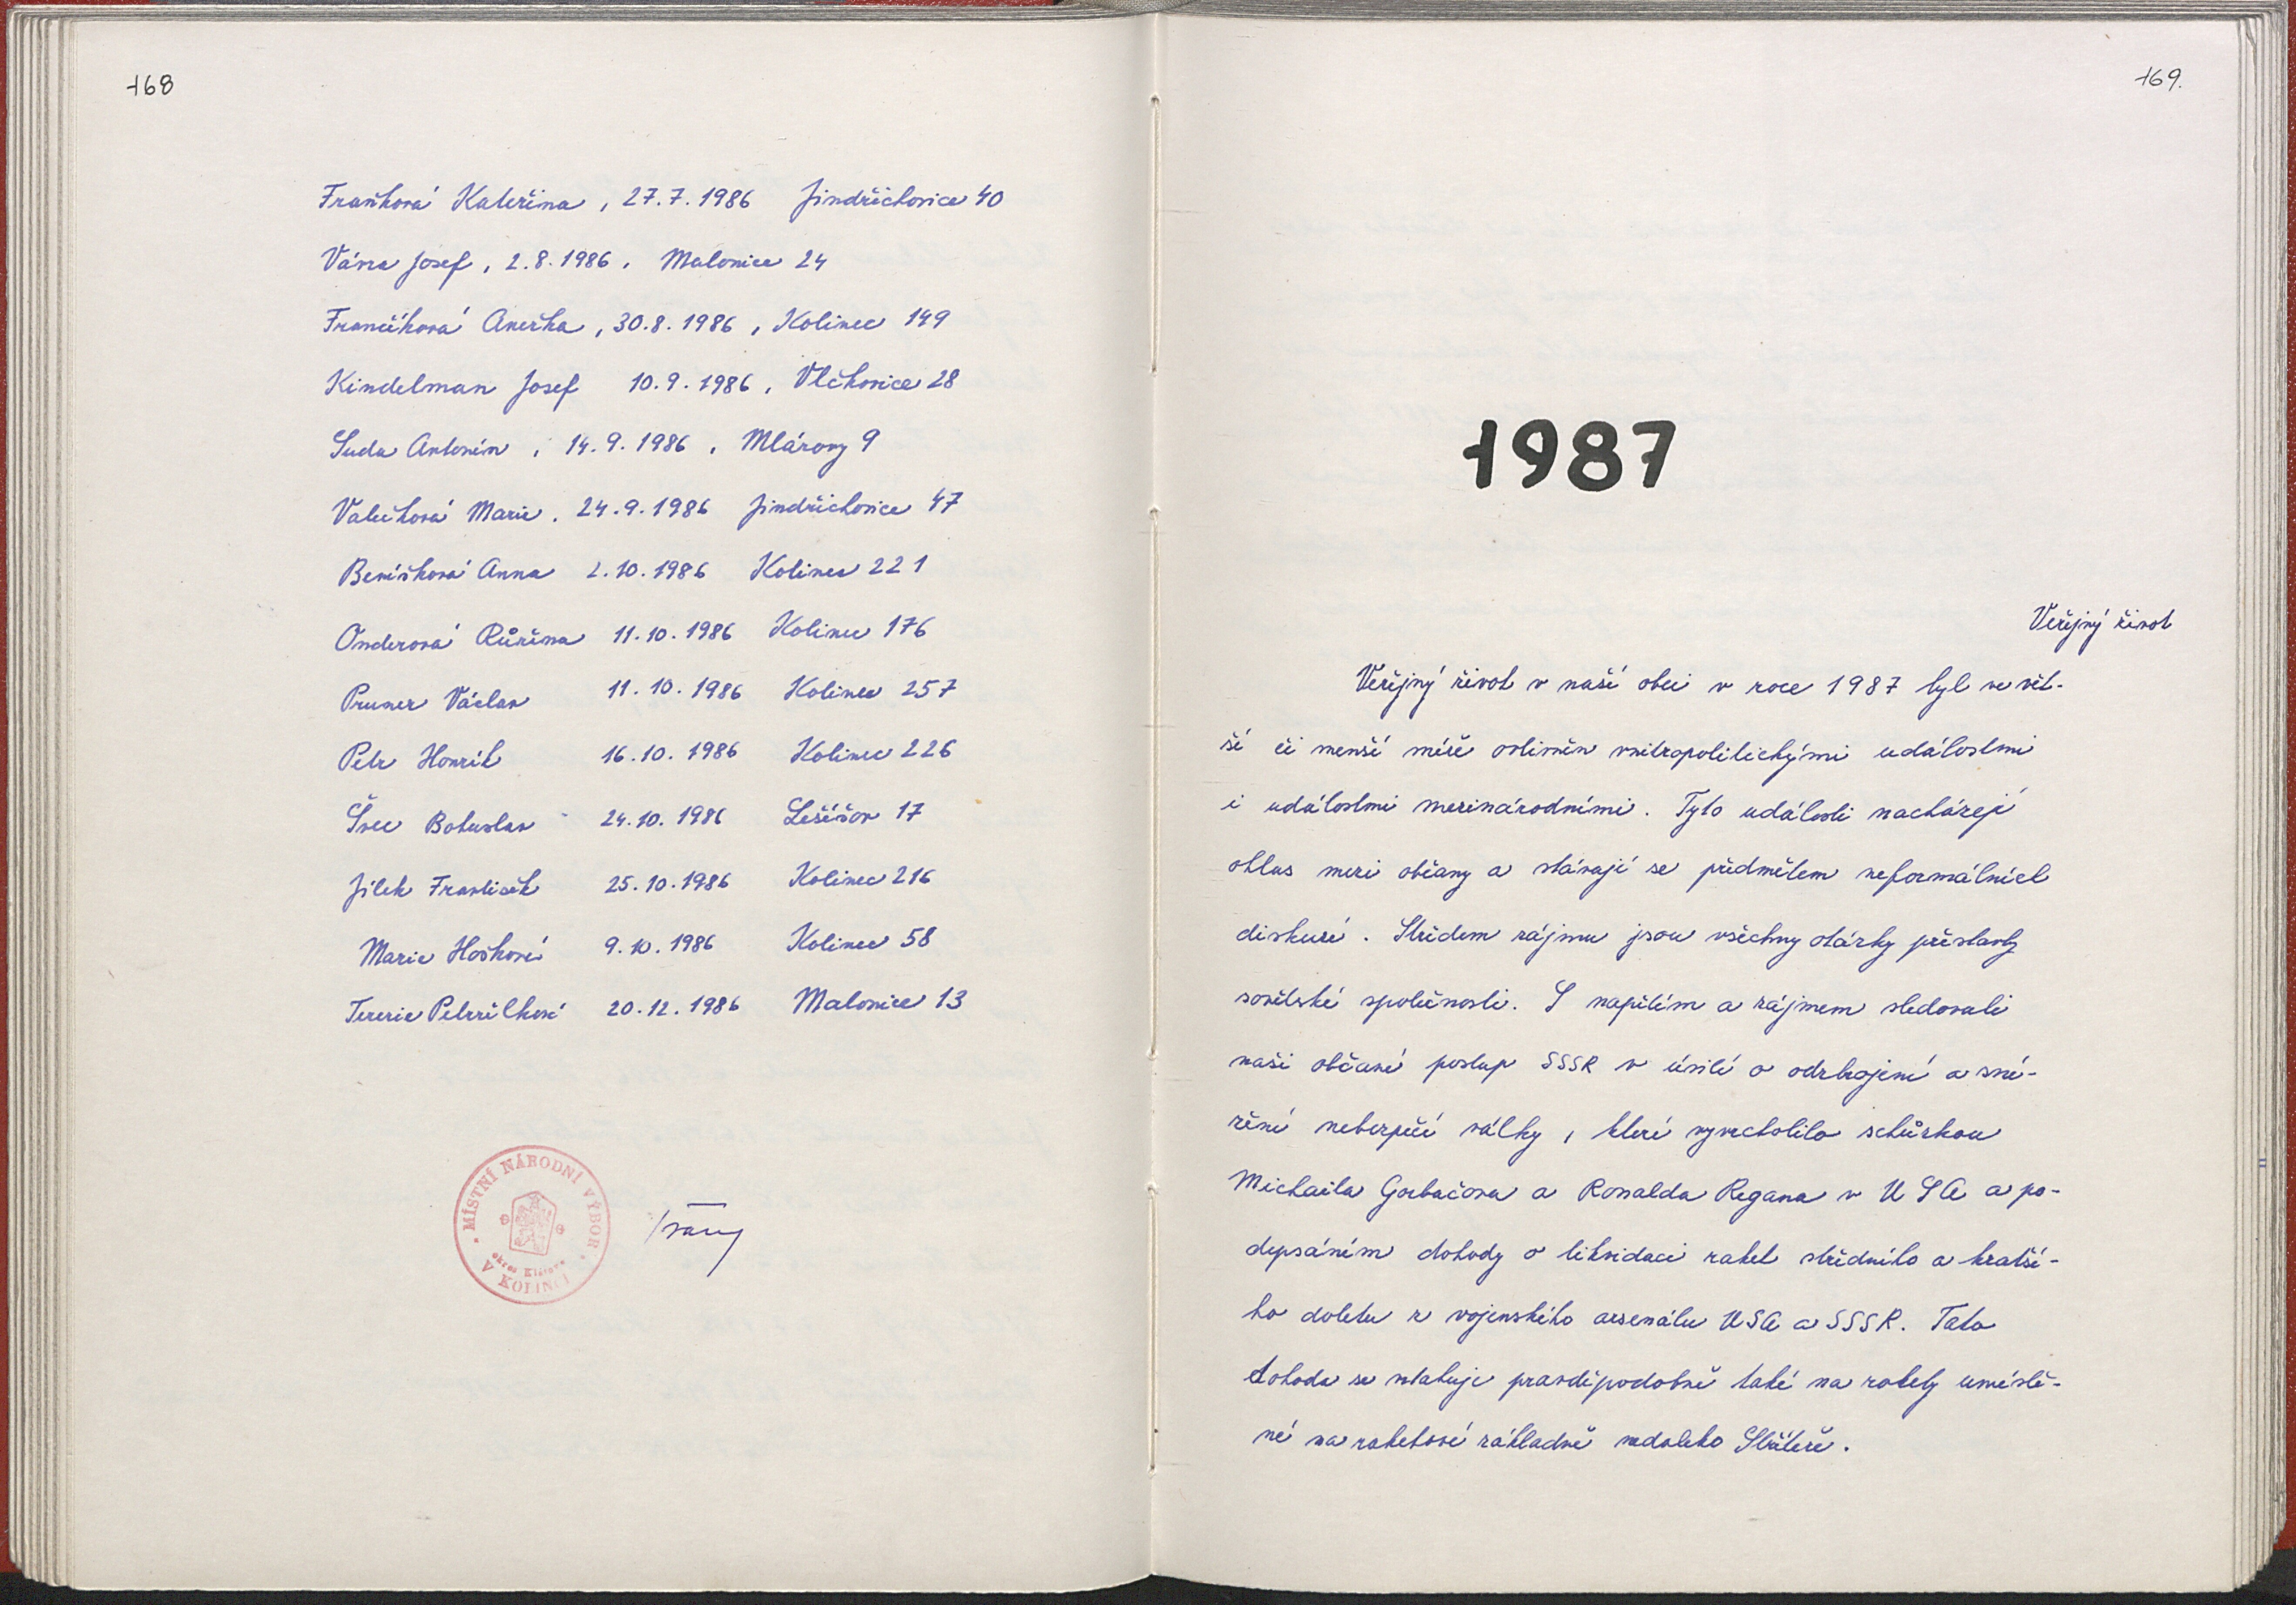 168
Fraňková Kateřina, 27.7.1986 Jindřichovice 40
Vána Josef, 2.8.1986, Malonice 24
Frančíková Anežka, 30.8.1986, Kolinec 149
Kindelman Josef 10.9.1986, Vlčkovice 28
Suda Antonín, 14.9.1986, Mlázovy 9
Valečková Marie, 24.9.1986 Jindřichovice 47
Beníšková Anna 2.10.1986 Kolinec 221
Onderová Růžena 11.10.1986 Kolinec 176
Pruner Václav 11.10.1986 Kolinec 257
Petr 16.10.1986 Kolinec 226
Švec Bohuslav 24.10.1986 Lešišov 17
Jílek František 25.10.1986 Kolinec 216
Marie Hošková 9.10.1986 Kolinec 58
Terezie Petržílková 20.12.1986 Malonice 13
MÍSTNÍ NÁRODNÍ VÝBOR
okres Klatovy
V KOLINCI
169.
1987
Veřejný život
Veřejný život v naší obci v roce 1987 byl ve vět-
ší či menší míře ovlivněn vnitropolitickými událostmi
i událostmi mezinárodními. Tyto události nacházejí
ohlas mezi občany a stávají se předmětem neformálních
diskuzí. Středem zájmu jsou všechny otázky přestavby
sovětské společnosti. S napětím a zájmem sledovali
naši občané postup SSSR v úsilí o odzbrojení a sní-
žení nebezpečí války, které vyvrcholilo schůzkou
Michaila Gorbačova a Ronalda Regana v USA a po-
depsáním dohody o likvidaci raket středního a kratší-
ho doletu z vojenského arsenálu USA a SSSR. Tato
dohoda se vztahuje pravděpodobně také na rakety umístě-
né na raketové základně nedaleko Strážerě.